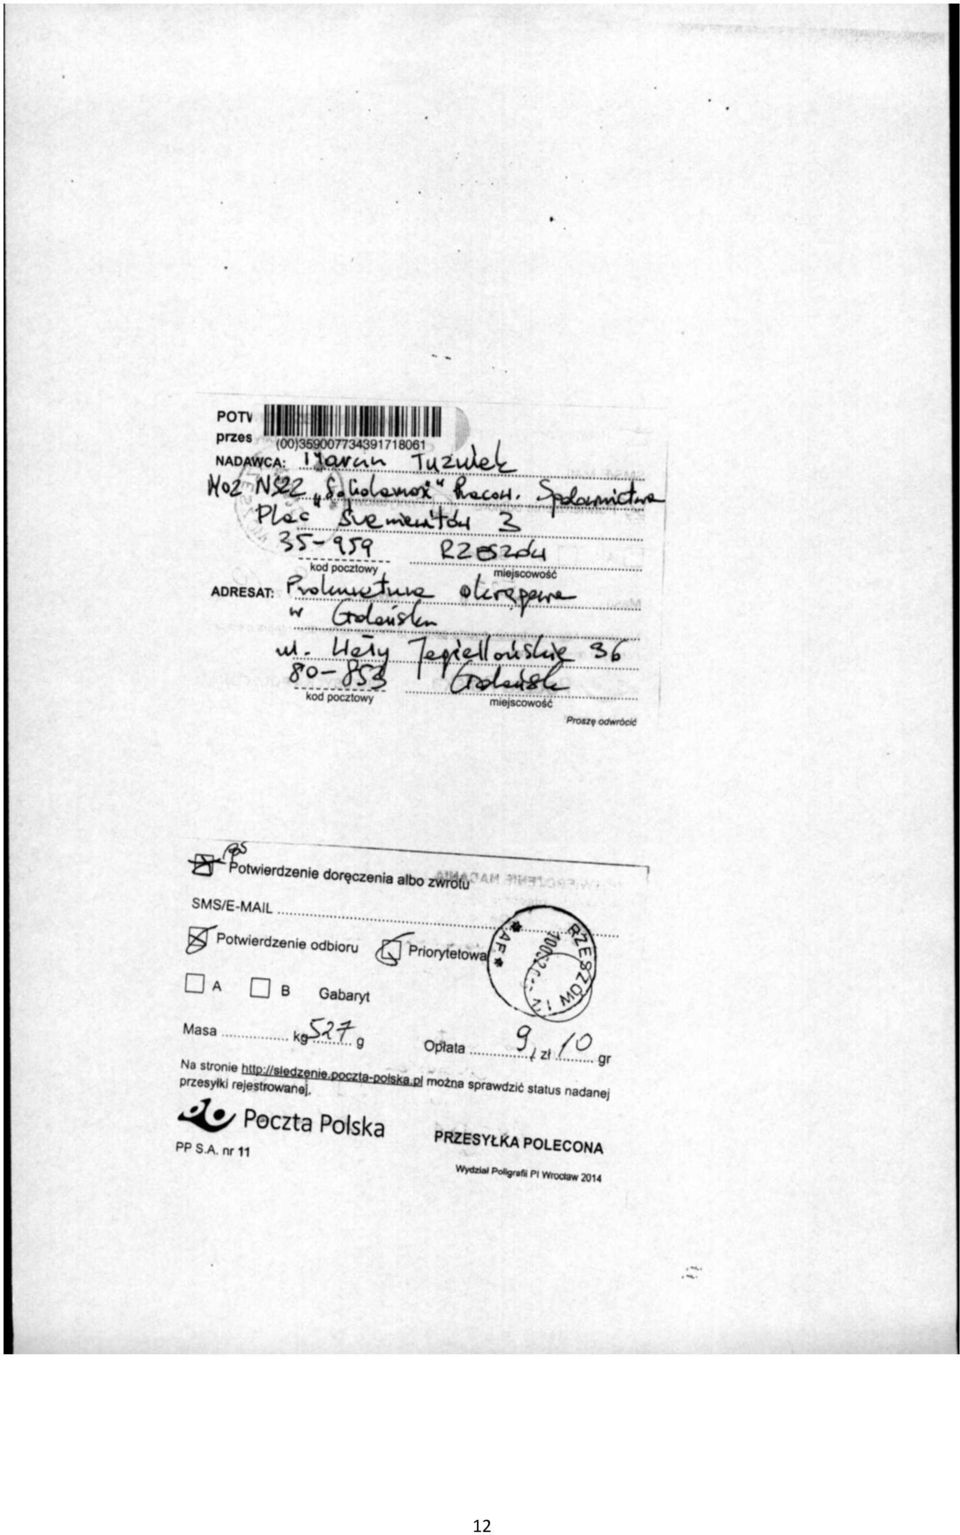 POTW
przes
(00)359007734391718061
NADAWCA: Marcin Tuzulek
MOZ NSZZ „Solidarność" Pracow. Spedownictwa
Plac Śreniawitów 3
35-959 RZESZÓW
kod pocztowy miejscowość
ADRESAT: Prokuratura Okręgowa
w Gdańsku
ul. Wały Jagiellońskie 36
80-853 Gdańsk
kod pocztowy miejscowość
Proszę odwrócić
Potwierdzenie doręczenia albo zwrotu
SMS/E-MAIL
Potwierdzenie odbioru Priorytetowa
A B Gabaryt
RZESZÓW 12
Masa kg 527 g Opłata 9, zł 10 gr
Na stronie http://sledzenie.poczta-polska.pl można sprawdzić status nadanej
przesyłki rejestrowanej.
Poczta Polska
PRZESYŁKA POLECONA
PP S.A. nr 11
Wydział Poligrafii PI Wrocław 2014
12